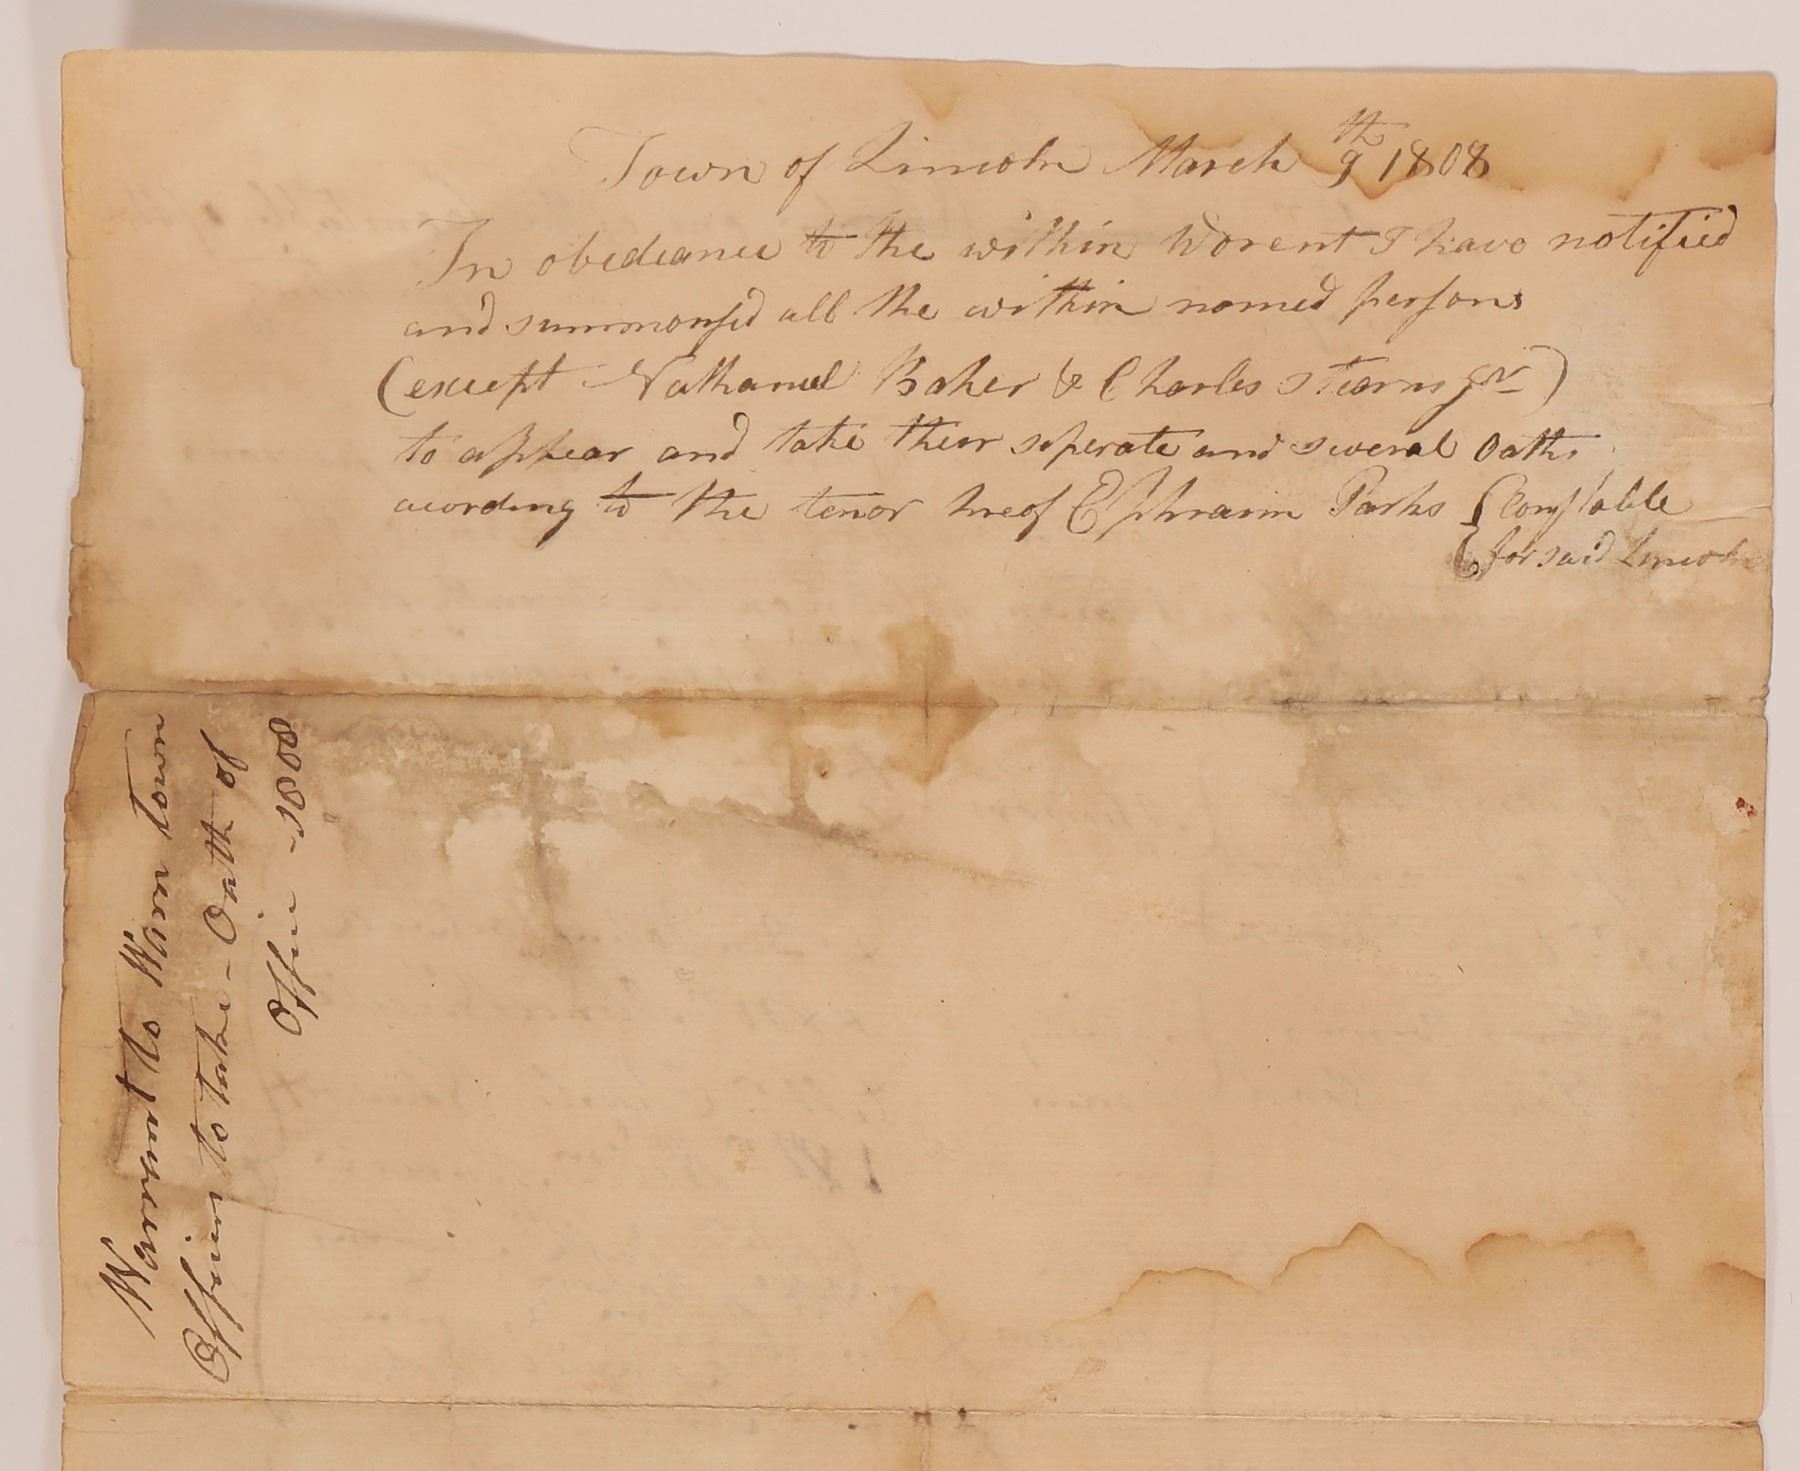 Town of Lincoln March 9th 1808
In obedeance to the within Worent I have notified
and summonsed all the within named persons
(except Nathanuel Baker & Charles Stearns Jnr)
to appear and take their seperate and several Oaths
acording to the tenor hreof Ephraim Parks { Constable
{ for said Lincoln
Warrant to Warn town
Officers to take - Oath of
Office - 1808